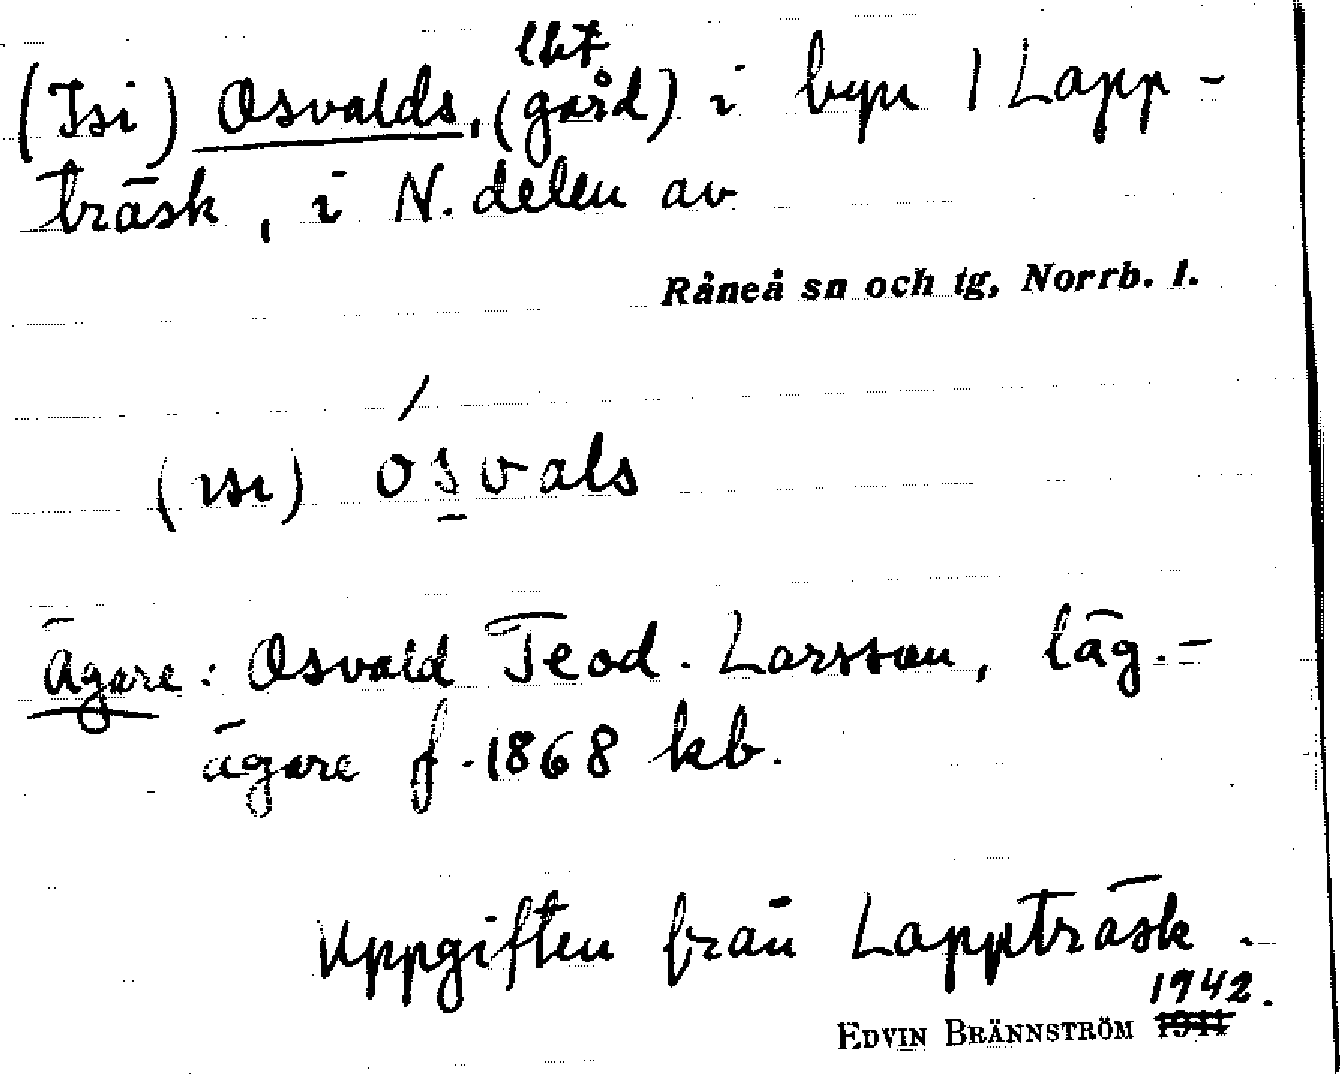 lht
(Isi) Osvalds, (gård) i byn / Lapp-
träsk, i N. delen av
Råneå sn och tg, Norrb. l.
(ısı) ósvals
Ägare: Osvald Teod. Larsson, läg.-
ägare f. 1868 kb.
Uppgiften från Lappträsk.
1942.
EDVIN BRÄNNSTRÖM 1941